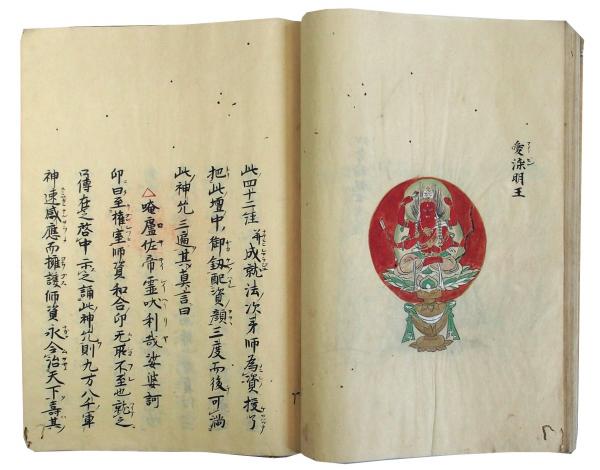 愛染明王
此四十二註并成就法次才師為資授了
把此壇中御釼配資顔三度而後可誦
此神咒三遍其真言曰
△唵廬佐帝霊吠利哉娑婆訶
印曰至権室師資和合印无飛不至也就之
口傳在之啓中示之誦此神咒則九万八千軍
神速感應而擁護師資永令治天下壽其